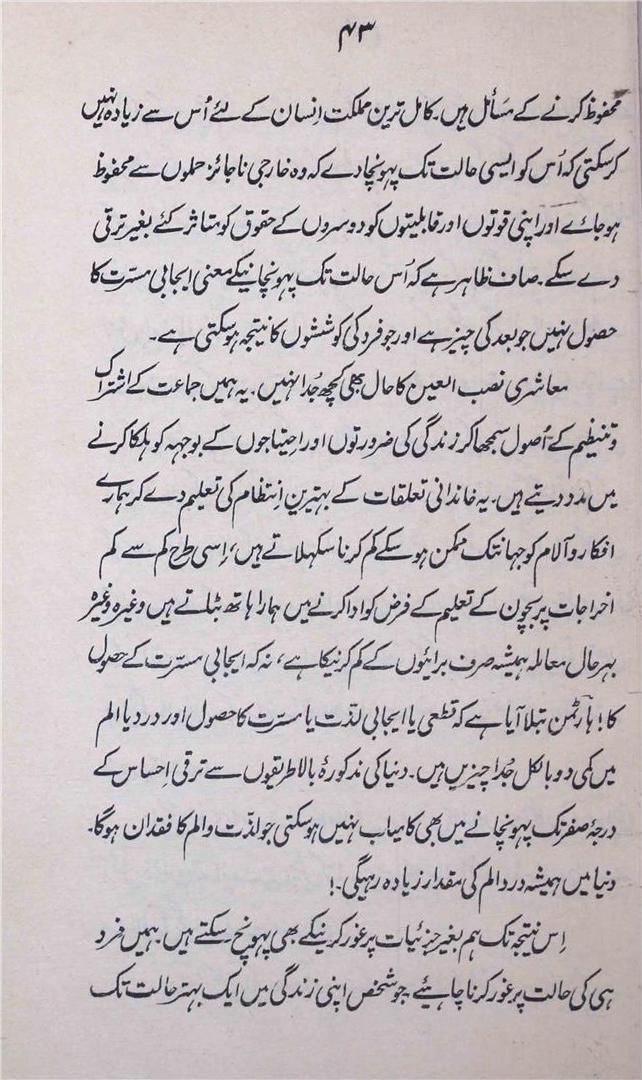 ۴۳
محفوظ کرنے کے مسَائل ہیں۔ کامل ترین مملکت اِنسان کے لئے اُس سے زیادہ نہیں
کرسکتی کہ اُس کو ایسی حالت تک پہونچا دے کہ وہ خارجی ناجائز حملوں سے محفوظ
ہوجائے اور اپنی قوتوں اور قابلیتوں کو دوسروں کے حقوق کو متاثر کئے بغیر ترقی
دے سکے۔ صاف ظاہر ہے کہ اُس حالت تک پہونچانیکے معنی ایجابی مسرّت کا
حصول نہیں جو بعد کی چیز ہے اور جو فرد کی کوششوں کا نتیجہ ہوسکتی ہے۔
معاشری نصب العین کا حال بھی کچھ جُدا نہیں۔ یہ ہمیں جماعت کے اشتراک
و تنظیم کے اُصول سمجھا کر زندگی کی ضرورتوں اور احتیاجوں کے بوجھہ کو ہلکا کرنے
میں مدد دیتے ہیں۔ یہ خاندانی تعلقات کے بہترین اِنتظام کی تعلیم دے کر ہمارے
افکار و آلام کو جہانتک ممکن ہوسکے کم کرنا سکھلاتے ہیں، اِسی طرح کم سے کم
اخراجات پر بچون کے تعلیم کے فرض کو ادا کرنے میں ہمارا ہاتھ بٹاتے ہیں وغیرہ وغیرہ
بہرحال معاملہ ہمیشہ صرف برائیوں کے کم کرنیکا ہے، نہ کہ ایجابی مسرّت کے حصول
کا! ہارٹمن بتلا آیا ہے کہ قطعی یا ایجابی لذّت یا مسرّت کا حصول اور درد یا الم
میں کمی دو بالکل جُدا چیزیں ہیں۔ دنیا کی مذکورۂ بالا طریقوں سے ترقی اِحساس کے
درجۂ صفر تک پہونچانے میں بھی کامیاب نہیں ہوسکتی جو لذّت و الم کا فقدان ہوگا۔
دنیا میں ہمیشہ درد الم کی مقدار زیادہ رہیگی۔!
اِس نتیجہ تک ہم بغیر جزئیات پر غور کرنیکے بھی پہونچ سکتے ہیں۔ ہمیں فرد
ہی کی حالت پر غور کرنا چاہیئے جو شخص اپنی زندگی میں ایک بہتر حالت تک